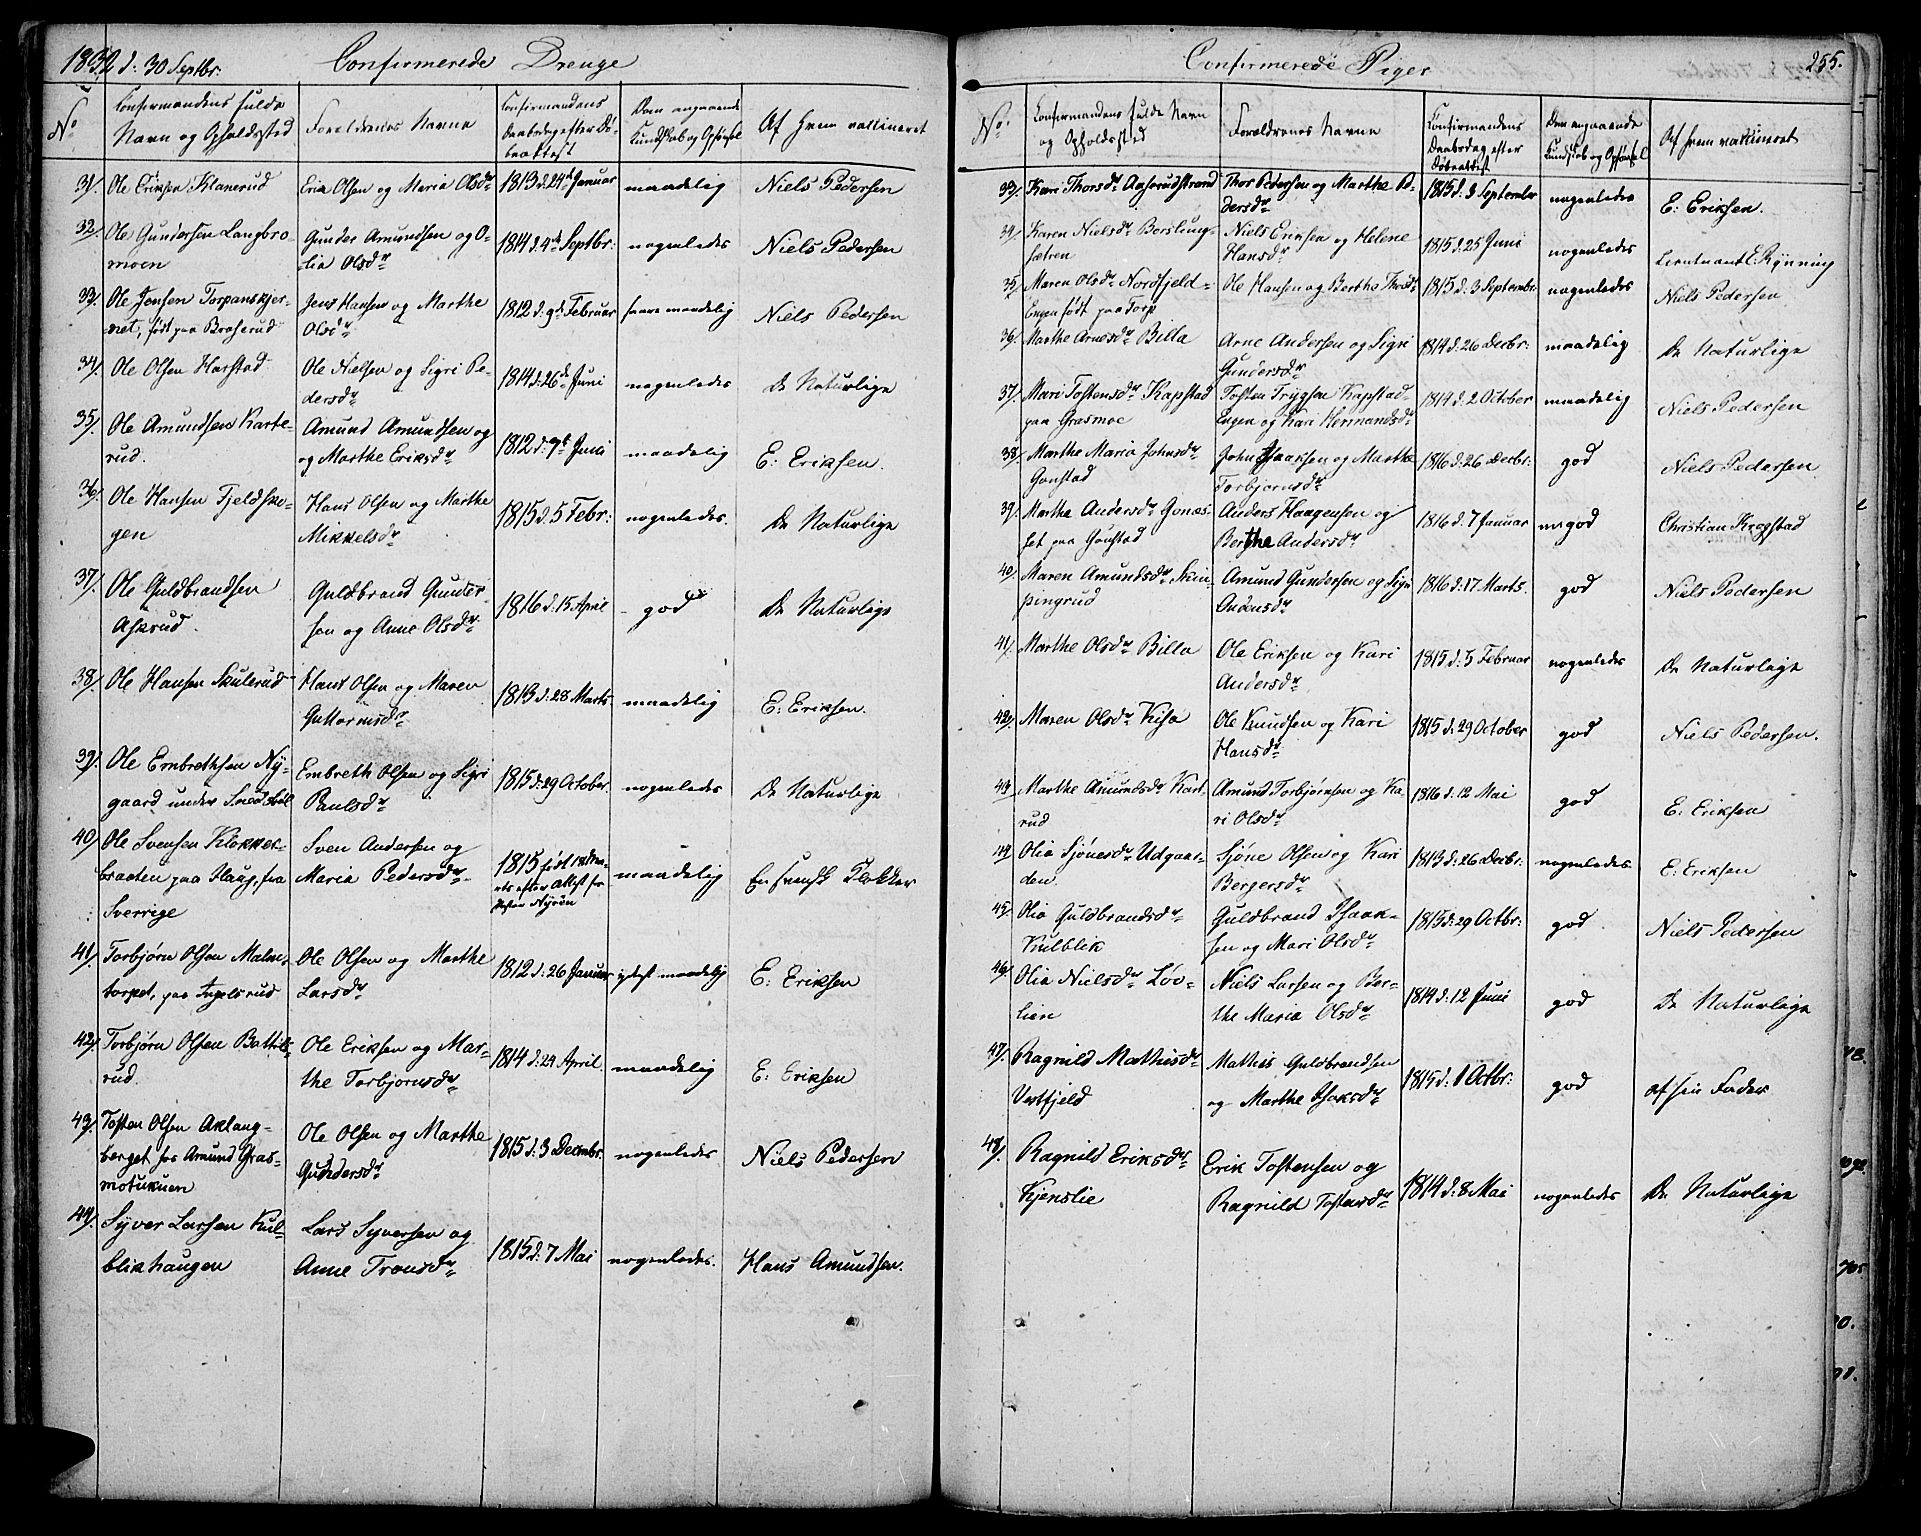 1832 d: 30 Septbr:
Confirmerede Drenge
No
Confirmandens fulde Navn og Opholdssted
Forældrenes Navne
Confirmandens Daabsdag efter Døbeattest
Dom angaaende Kundskab og Opførsel
Af hvem vaccineret
31/. Ole Eriksen Klanerud
Erik Olsen og Maria Olsdr
1813 d. 24de Januar
maadelig
Niels Pedersen
32/. Ole Gundersen Langbro-
moen
Gunder Amundsen og O-
lia Olsdr
1814 d. 4de Septbr:
nogenledes
Niels Pedersen
33/. Ole Jensen Torpanskjer-
net, født paa Braserud
Jens Hansen og Marthe
Olsdr
1812 d. 9de Februar
saare maadelig
Niels Pedersen
34/. Ole Olsen Harstad
Ole Nielsen og Sigri Pe-
dersdr
1814 d. 26de Juni
nogenledes
De Naturlige
35/. Ole Amundsen Karte-
rud.
Amund Amundsen og
og Marthe Eriksdr
1812 d. 7de Juni
maadelig
E: Eriksen.
36/. Ole Hansen Fjeldsko-
gen
Hans Olsen og Marthe
Mikkelsdr
1815 d. 5 Febr:
nogenledes.
De Naturlige
37/. Ole Guldbrandsen
Askrud.
Guldbrand Gunder-
sen og Anne Olsdr
1816 d. 15 April
god
De Naturlige
38/. Ole Hansen Skulerud
Hans Olsen og Maren
Guttormsdr
1813 d: 28 Marts
maadelig
E: Eriksen.
39/. Ole Embrethsen Ny-
gaard under Sredsbøl
Embreth Olsen og Sigri
Paulsdr
1815 d. 29 October.
nogenledes
De Naturlige
40/. Ole Svensen Klokker-
braaten paa Haug, fra
Sverrige
Sven Andersen og
Maria Pedersdr
1815 født
efter Attest fra
maadelig
En svensk Klokker
41/. Torbjørn Olsen Malme-
torpet, paa Ingelsrud
Ole Olsen og Marthe
Larsdr
1812 d: 26 Januar
maadelig
E: Eriksen
42/. Torbjørn Olsen Battils-
rud.
Ole Eriksen og Mar-
the Torbjørnsdr
1814 d: 24 April
maadelig
E: Eriksen
43/. Tosten Olsen Aklang-
berget hos Amund Gras-
motukuen
Ole Olsen og Marthe
Gundersdr
1815 d. 3 Decmbr.
nogenledes
Niels Pedersen
44/. Syver Larsen Kul-
blikhaugen
Lars Syversen og
Anne Tronsdr
1815 d: 7 Mai
nogenledes.
Hans Amundsen.
Confirmerede Piger
255.
No.
Confirmandens fulde Navn og Opholdssted
Forældrenes Navne
Confirmandens Daabsdag efter Døbeattest
Dom angaaende Kundskab og Opførsel
Af hvem vaccineret
33/. Kari Thorsdr Aaserudstrand
Thor Pedersen og Marthe P-
dersdr
1815 d: 3 September
nogenledes
E: Eriksen.
34/. Karen Nielsdr Børslung-
sætren
Niels Eriksen og Helene
Hansdr
1815 d: 25 Juni
nogenledes
Lieutnant E. Rynning
35/. Maren Olsdr Nordfjeld-
Engen født paa Torp
Ole Hansen og Berthe Thordr
1815 d: 3 Septembr.
nogenledes
Niels Pedersen
36/. Marthe Arnesdr Billa
Arne Andersen og Sigri
Gundersdr
1814 d: 26 Decbr:
maadelig
De Naturlige
37/. Mari Tostensdr Kapstad
paa Grasmoe
Tosten Trygsen Kapstad-
Engen og Kari Hermandsdr
1814 d. 2 October
maadelig
Niels Pedersen
38/. Marthe Maria Johnsdr
Gonstad
John Isaaksen og Marthe
Torbjørnsdr
1816 d: 26 Decbr:
god
Niels Pedersen
39/. Marthe Andersdr Gones-
set paa Gonstad
Anders Haagensen og
Berthe Andersdr
1816 d. 7 Januar
meg god
Christian Kragstad
40/. Maren Amundsdr Skin-
pingrud
Amund Gundersen og Sign
Andersdr
1816 d: 17 Marts.
god
Niels Pedersen
41/. Marthe Olsdr Billa
Ole Eriksen og Kari
Andersdr
1815 d: 5 Februar
nogenledes
De Naturlige
42/. Maren Olsdr Kisa
Ole Knudsen og Kari
Hansdr
1815 d: 29 October
god
Niels Pedersen.
43/. Marthe Amundsdr Kart-
rud
Amund Torbjørnsen og Ka-
ri Olsdr
1816 d. 12 Mai
god
E: Eriksen
44/. Olia Sjønesdr Udgaar-
den.
Sjøne Olsen og Kari
Bergersdr
1813 d: 26 Decbr:
nogenledes.
E: Eriksen
45/. Olia Guldbrandsdr
Kulblik
Guldbrand Isaak-
sen og Mari Olsdr
1815 d: 29 Octbr:
god
Niels Pedersen
46/. Olia Nielsdr Løv-
lien
Niels Larsen og Ber-
the Maria Olsdr
1814 d: 12 Juni
god
De Naturlige
47/. Ragnild Mathisdr
Vestfjeld
Mathis Guldbrandsen
og Marthe Isaksdr
1815 d: 1 Octbr:
god
af sin Fader
48/. Ragnild Eriksdr
Kjenslie
Erik Tostensen og
Ragnild Tostensdr
1814 d: 8 Mai
nogenledes
De Naturlige